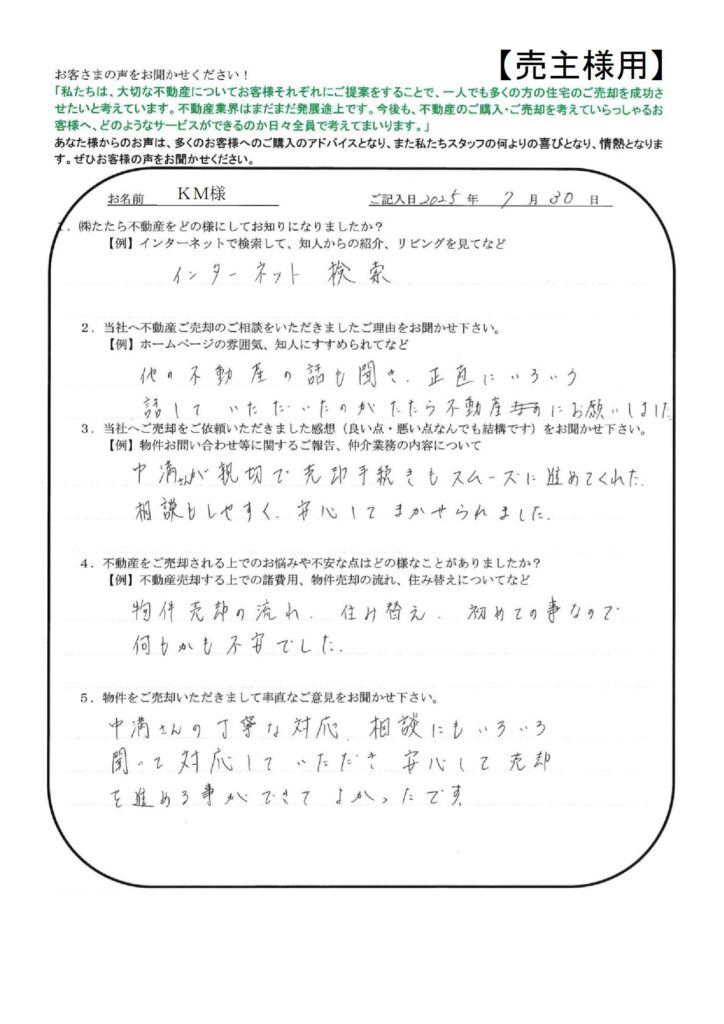 【売主様用】
お客さまの声をお聞かせください！
「私たちは、大切な不動産についてお客様それぞれにご提案をすることで、一人でも多くの方の住宅のご売却を成功さ
せたいと考えています。不動産業界はまだまだ発展途上です。今後も、不動産のご購入・ご売却を考えていらっしゃるお
客様へ、どのようなサービスができるのか日々全員で考えてまいります。」
あなた様からのお声は、多くのお客様へのご購入のアドバイスとなり、また私たちスタッフの何よりの喜びとなり、情熱となりま
す。ぜひお客様の声をお聞かせください。
お名前 KM様 ご記入日 2025 年 7 月 30 日
1．㈱たたら不動産をどの様にしてお知りになりましたか？
【例】インターネットで検索して、知人からの紹介、リビングを見てなど
インターネット 検索
2．当社へ不動産ご売却のご相談をいただきましたご理由をお聞かせ下さい。
【例】ホームページの雰囲気、知人にすすめられてなど
他の不動産の話も聞き、正直にいろいろ
話していただいたのがたたら不動産にお願いしました
3．当社へご売却をご依頼いただきました感想（良い点・悪い点なんでも結構です）をお聞かせ下さい。
【例】物件お問い合わせ等に関するご報告、仲介業務の内容について
中溝さんが親切で売却手続きもスムーズに進めてくれた。
相談もしやすく、安心してまかせられました。
4．不動産をご売却される上でのお悩みや不安な点はどの様なことがありましたか？
【例】不動産売却する上での諸費用、物件売却の流れ、住み替えについてなど
物件売却の流れ、住み替え、初めての事なので
何もかも不安でした。
5．物件をご売却いただきまして率直なご意見をお聞かせ下さい。
中溝さんの丁寧な対応、相談にもいろいろ
聞いて対応していただき安心して売却
を進める事ができてよかったです。